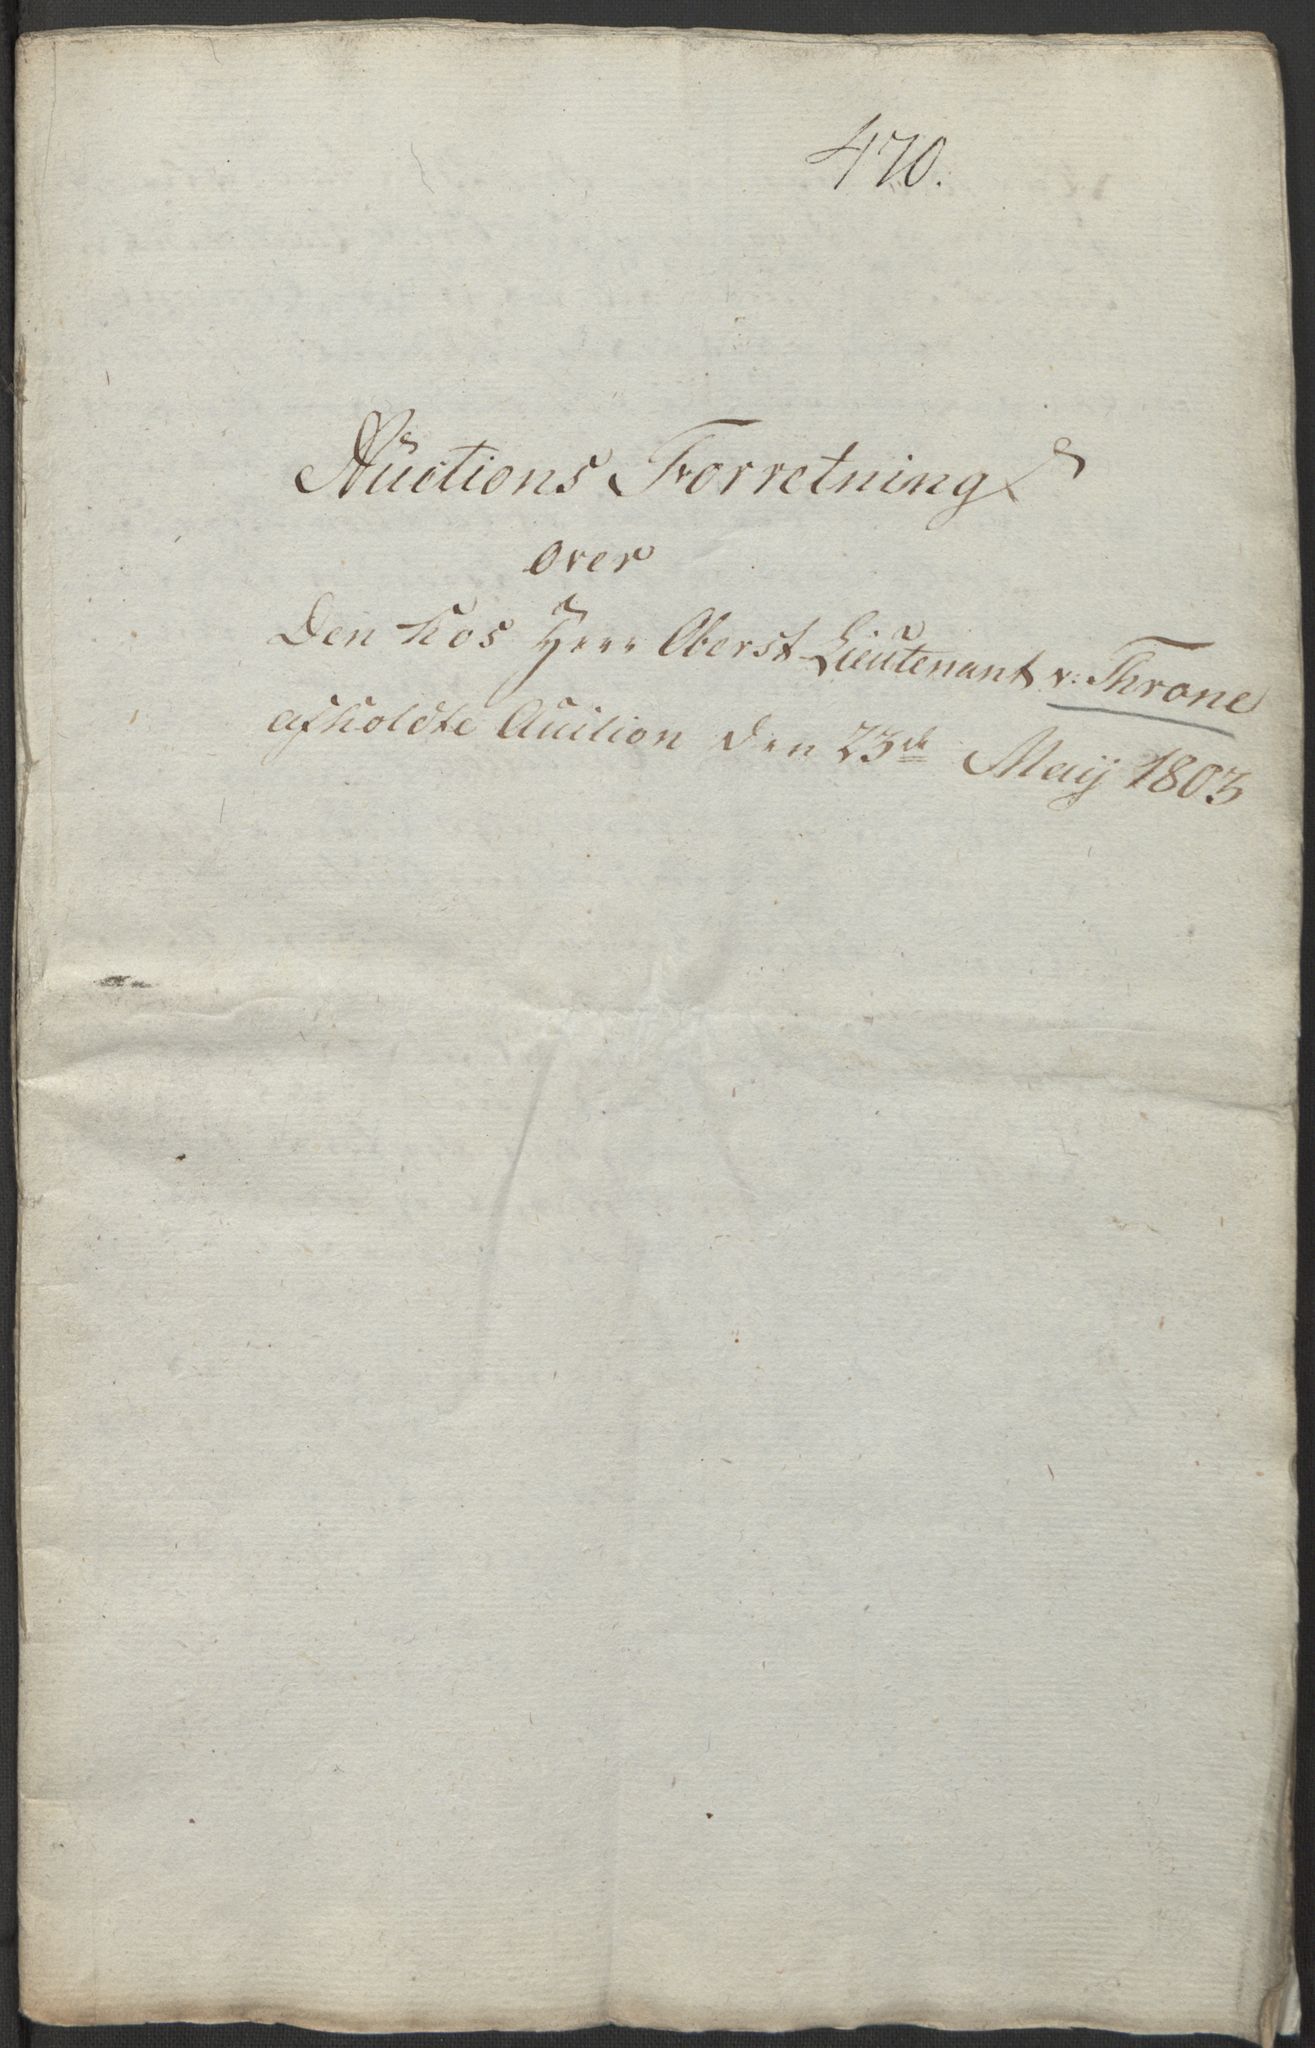 470.
Auctions Forretning
over
Den hos Herr Oberst Lieutenant v: Throne
afholdte Auction den 23de Maij 1803